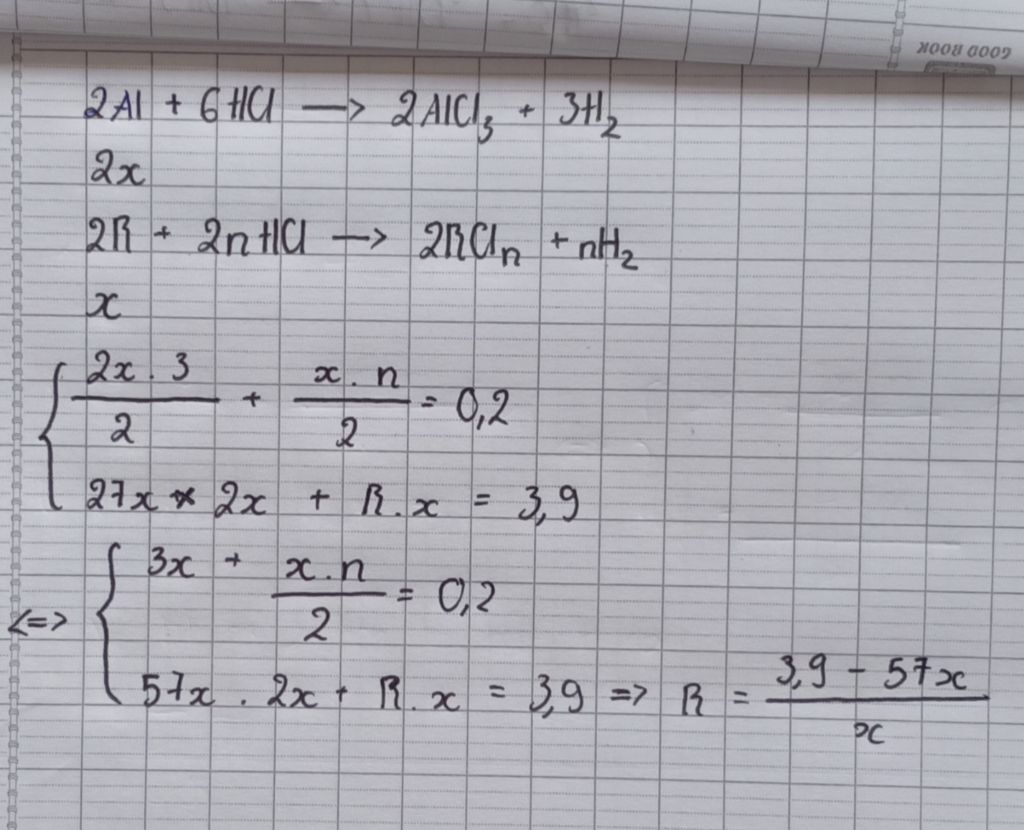 GOOD BOOK
2Al + 6HCl → 2AlCl₃ + 3H₂
2x
2R + 2nHCl → 2RClₙ + nH₂
x
{ 2x . 3 / 2 + x . n / 2 = 0,2
27x * 2x + R . x = 3,9
<=> { 3x + x . n / 2 = 0,2
57x . 2x + R . x = 3,9 => R = 3,9 - 57x / x